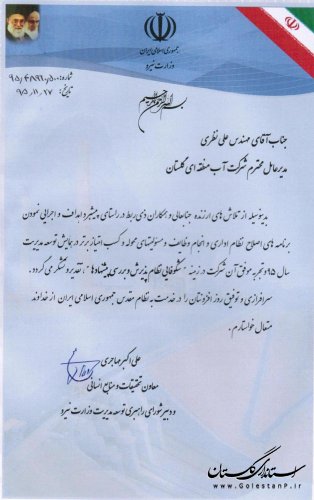 جمهوری اسلامی ایران
وزارت نیرو
شماره: ۹۵/۴۸۹۹۱/۵۰۰
تاریخ: ۹۵/۱۱/۲۷
بسم الله الرحمن الرحیم
جناب آقای مهندس علی نظری
مدیرعامل محترم شرکت آب منطقه ای گلستان
بدینوسیله از تلاش های ارزنده جنابعالی و همکاران ذی ربط در راستای پیشبرد اهداف و اجرایی نمودن
برنامه های اصلاح نظام اداری و انجام وظایف و مسئولیتهای محوله و کسب امتیاز برتر در همایش توسعه مدیریت
سال ۹۵ و تجربه موفق آن شرکت در زمینه " شکوفایی نظام پذیرش و بررسی پیشنهادها " ، تقدیر و تشکر می گردد.
سرافرازی و توفیق روز افزونتان را در خدمت به نظام مقدس جمهوری اسلامی ایران از خداوند
متعال خواستارم.
علی اکبر مهاجری
معاون تحقیقات و منابع انسانی
و دبیر شورای راهبری توسعه مدیریت وزارت نیرو
استانداری گلستان
www.GolestanP.ir